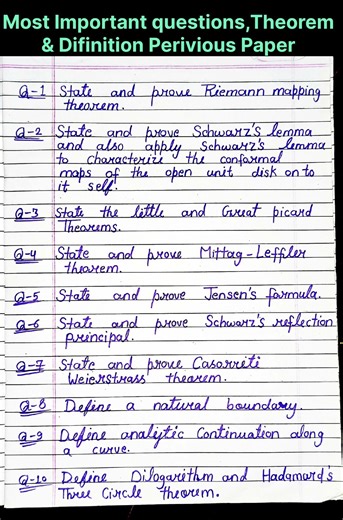 Most Important questions,Theorem
& Difinition Perivious Paper
Q-1 State and prove Riemann mapping
theorem.
Q-2 State and prove Schwarz's lemma
and also apply Schwarz's lemma
to characterize the conformal
maps of the open unit disk on to
it self.
Q-3 State the little and Great picard
Theorems.
Q-4 State and prove Mittag-Leffler
theorem.
Q-5 State and prove Jensen's formula.
Q-6 State and prove Schwarz's reflection
principal.
Q-7 State and prove Casorreti
Weierstrass theorem.
Q-8 Define a natural boundary.
Q-9 Define analytic Continuation along
a curve.
Q-10 Define Dilogarithm and Hadamard's
Three Circle theorem.